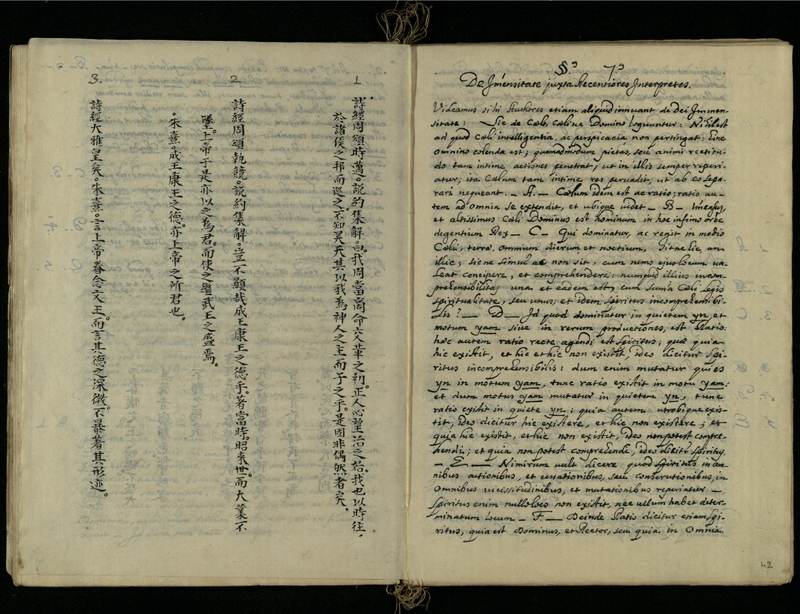 1
詩經周頌時邁。說約集解。曰我周當商命攵革之初。正人心望治之始。我也以時往。
於諸侯之邦而巡之。不知昊天其以我為神人之主而子之乎。是固非偶然者矣。
2
詩經周頌執競。說約集解。豈不顯哉成王康王之德乎。著當時。昭來世。而大業不
墜。上帝于是亦以之為君。而使之繼武王之盛焉。
朱熹。成王康王之德。亦上帝之所君也。
3.
詩經大雅皇矣。朱熹。言上帝眷念文王。而言其德之深微。不暴著其形迹。
§º 7º
De Immensitate juxta Recentiores Interpretes.
Videamus si hi Authores etiam aliquid innuant de Dei Immen
sitate: Sic de Cœli Cœlique Domino loquuntur: Nihil est
ad quod Cœli intelligentia, ac perspicacia non pertingat;
omnino colenda est; quemadmodum pietas seu animi rectitu
do tam intime, actiones penetrat, ut in illis semper reperi
atur; ita Cœlum tam intime res pervadit, ut ab eo sepa
rari nequeant. _ A. _ Cœlum idem est ac ratio; ratio au
tem ad Omnia se extendit, et ubique videt _ B _
et altissimus Cœli Dominus est hominum in hoc infimo orbe
degentium Rex _ C _ Qui dominatur, ac regit in medio
Cœli, terræ, omnium dierum et noctium, Sit ne hic, an
illic, sit ne simul ac non sit, cum nemo ejus
leat concipere, et comprehendere, numquid illius incom
prehensibilitas una et eadem est, cum summa Cœli legis
spiritualitate, seu unus, et idem spiritus incomprehensibi
lis? _ D _ Id quod dominatur in quietem yn, et
motum yam sive in rerum productiones, est Ratio
hæc autem ratio recte agendi est spiritus; quæ quia
hic existit, et hic et hic non existit, ideo dicitur Spi
ritus incomprehensibilis: dum enim mutatur quies
yn in motum yam, tunc ratio existit in motu yam;
et dum motus yam mutatur in quietem yn, tunc
ratio existit in quiete yn; quia autem utrobique exis
tit, ideo dicitur hic existere, et hic non existere; et
quia hic existit, et hic non existit, ideo non potest compre
hendi; et quia non potest comprehendi, ideo dicitur spiritus.
_ E _ Nimirum vult dicere quod spiritus in om
nibus actionibus, et cessationibus, seu conservationibus, in
Omnibus vicissitudinibus, et mutationibus reperiatur _
Spiritus enim nullo loco non existit, nec ullum habet deter
minatum locum _ F. _ Deinde Ratio dicitur etiam spi
ritus, quia est Dominus, et Rector, seu quia in Omnia
42